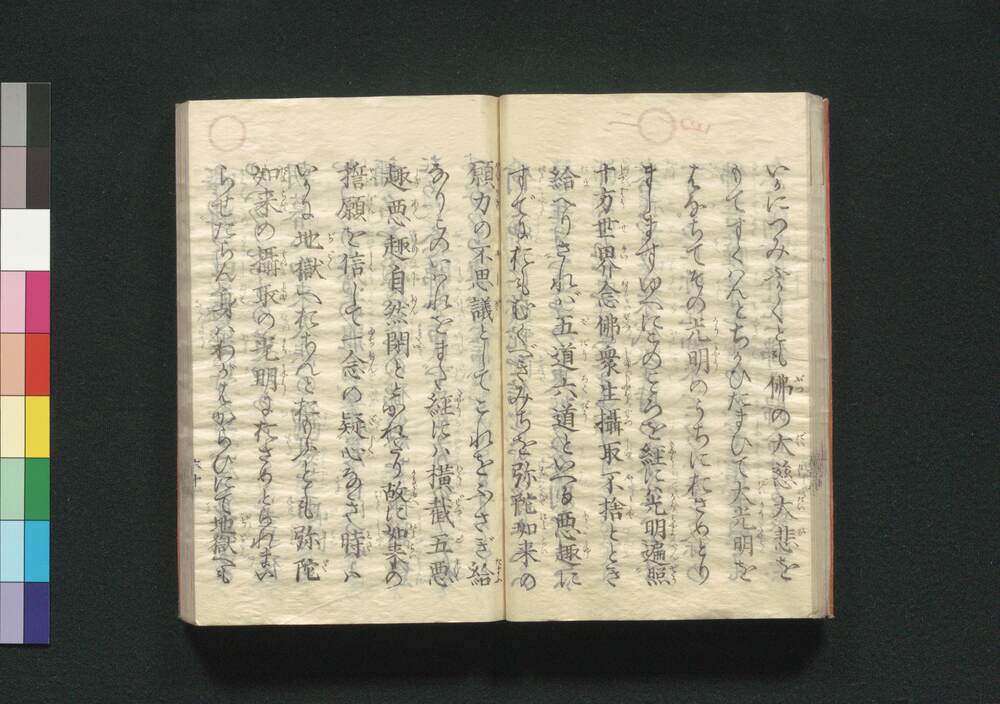 いかにつみふかくとも佛の大慈大悲を
もてすくはんとちかひたまひて大光明を
はなちてその光明のうちにおさめとり
ましますゆへにこのこゝろを経に光明遍照
十方世界念佛衆生攝取不捨ととき
給へりされば五道六道といへる悪趣に
すでにおもむくべきみちを弥陀如来の
願力の不思議としてこれをふさぎ給
なりこのいはれをまた経には横截五悪
趣悪趣自然閉ととかれたり故に如来の
誓願を信じて一念の疑心なき時は
いかに地獄へおちんとおもふとも弥陀
如来の攝取の光明におさめとられまい
らせたらん身はわがはからひにて地獄へも
六十